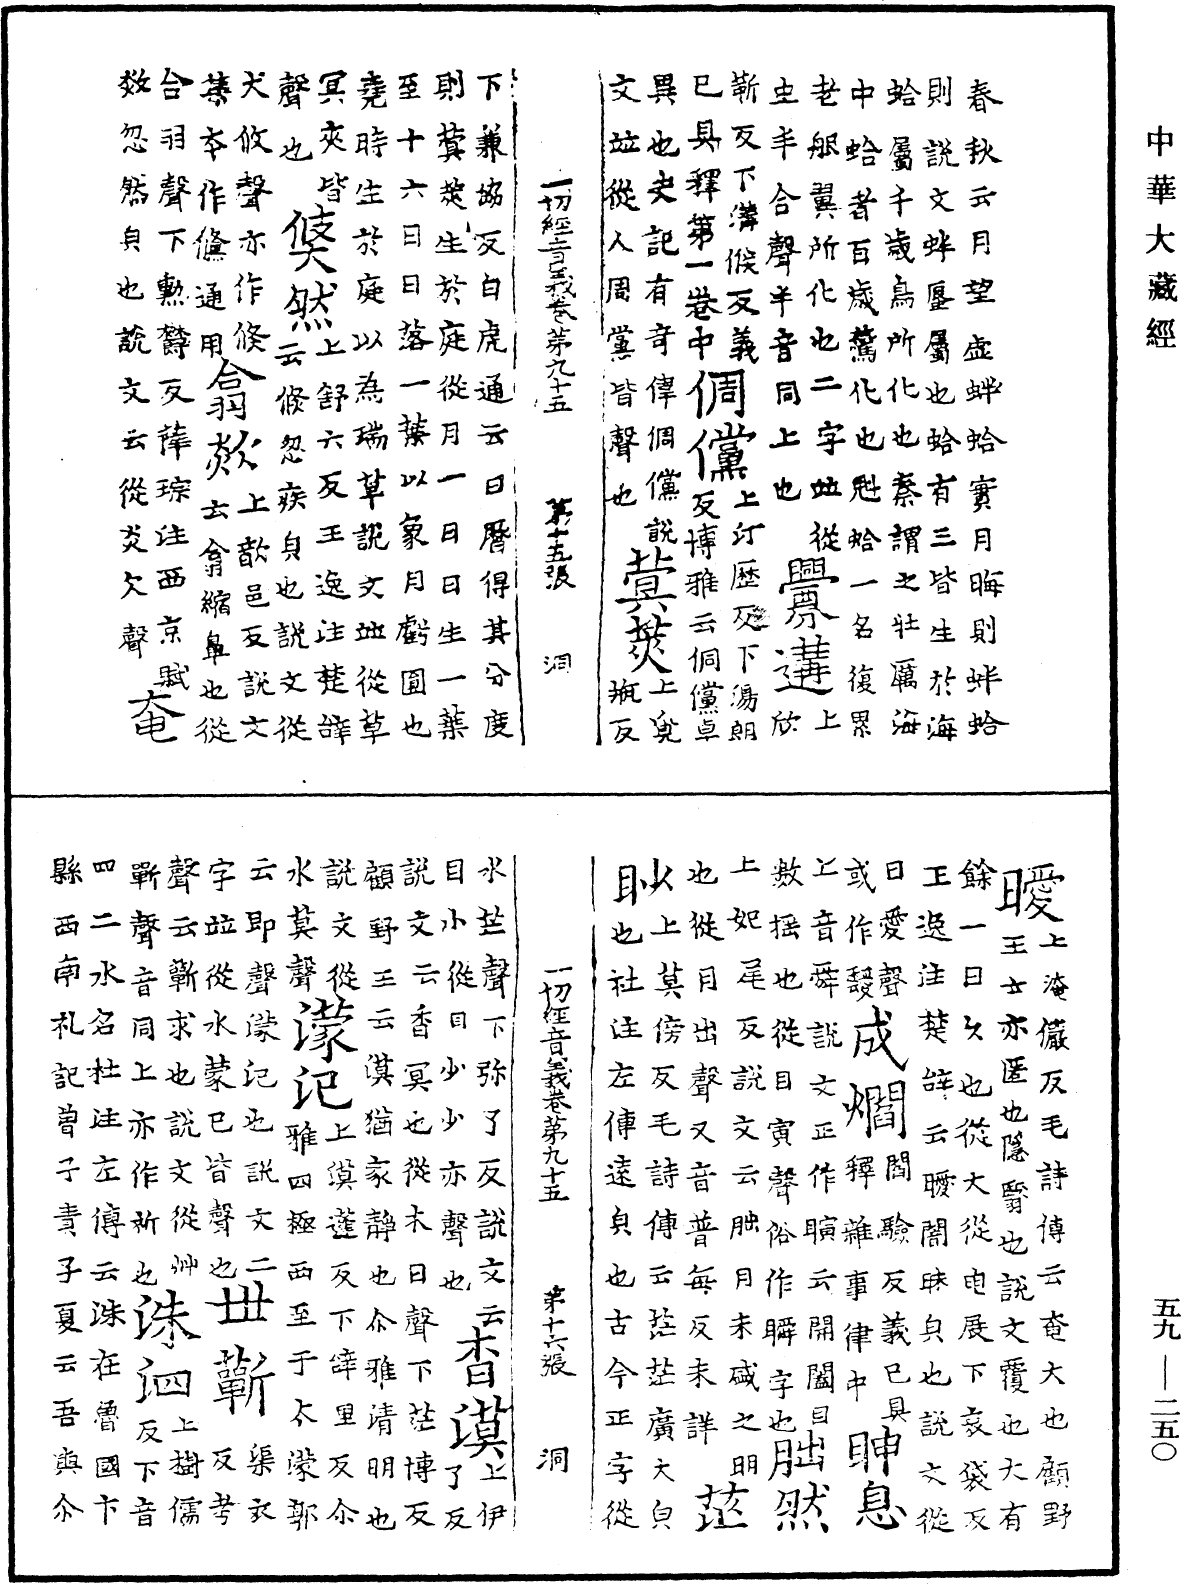 中華大藏經
春秋云月望虛蜯蛤實月晦則蜯蛤
則說文蜯蜃屬也蛤有三皆生於海
蛤屬千歲鳥所化也秦謂之牡厲海
中蛤者百歲鷰化也魁蛤一名復累
老服翼所化也二字竝從
虫半合聲半音同上也 釁遘 上欣
靳反下溝候反義
已具釋第一卷中 倜儻 上汀歷反下湯朗
反博雅云倜儻卓
異也史記有奇偉倜儻說
文竝從人周黨皆聲也 蓂莢 上覓
瓶反
一切經音義卷第九十五 第十五張 洞
下兼協反白虎通云日曆得其分度
則蓂莢生於庭從月一日日生一葉
至十六日日落一葉以象月虧圓也
堯時生於庭以為瑞草說文竝從草
冥夾皆
聲也 倏然 上舒六反王逸注楚辭
云倏忽疾皃也說文從
犬攸聲亦作倏
集本作儵通用 翕欻 上歆邑反說文
云翕縮鼻也從
合羽聲下勳欝反薛琮注西京賦
欻忽然皃也說文云從炎欠聲 奄
曖 上淹儼反毛詩傳云奄大也顧野
王云亦匿也隱翳也說文覆也大有
餘一曰久也從大從电展下哀袋反
王逸注楚辭云曖闇昧皃也說文從
日愛聲
或作靉 成爓 閻驗反義已具
釋雜事律中 眒息
上音舜說文正作瞚云開闔目
數搖也從目寅聲俗作瞬字也 朏然
上妃尾反說文云朏月未盛之明
也從月出聲又音普每反未詳 茫
以上莫傍反毛詩傳云茫茫廣大皃
眇也社注左傳遠皃也古今正字從
一切經音義卷第九十五 第十六張 洞
水芒聲下弥了反說文云
目小從目少少亦聲也 杳漠 上伊
了反
說文云杳冥也從木日聲下茫博反
顧野王云漠猶家靜也尒雅清明也
說文從
水莫聲 濛汜 上漠蓬反下辭里反尒
雅四極西至于太濛郭
云即聲濛汜也說文二
字竝從水蒙巳皆聲也 丗蘄 渠衣
反考
聲云蘄求也說文從艸
靳聲音同上亦作祈也 洙泗 上樹儒
反下音
四二水名杜注左傳云洙在魯國卞
縣西南礼記曾子責子夏云吾與尒
五九—二五〇